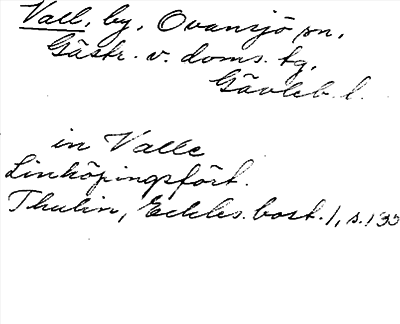 Vall, by, Ovansjö sn,
Gästr. v. doms. tg,
Gävleb. l.
in Valle
Linköpingsfört.
Thulin, Eckles. bost. 1, s. 133